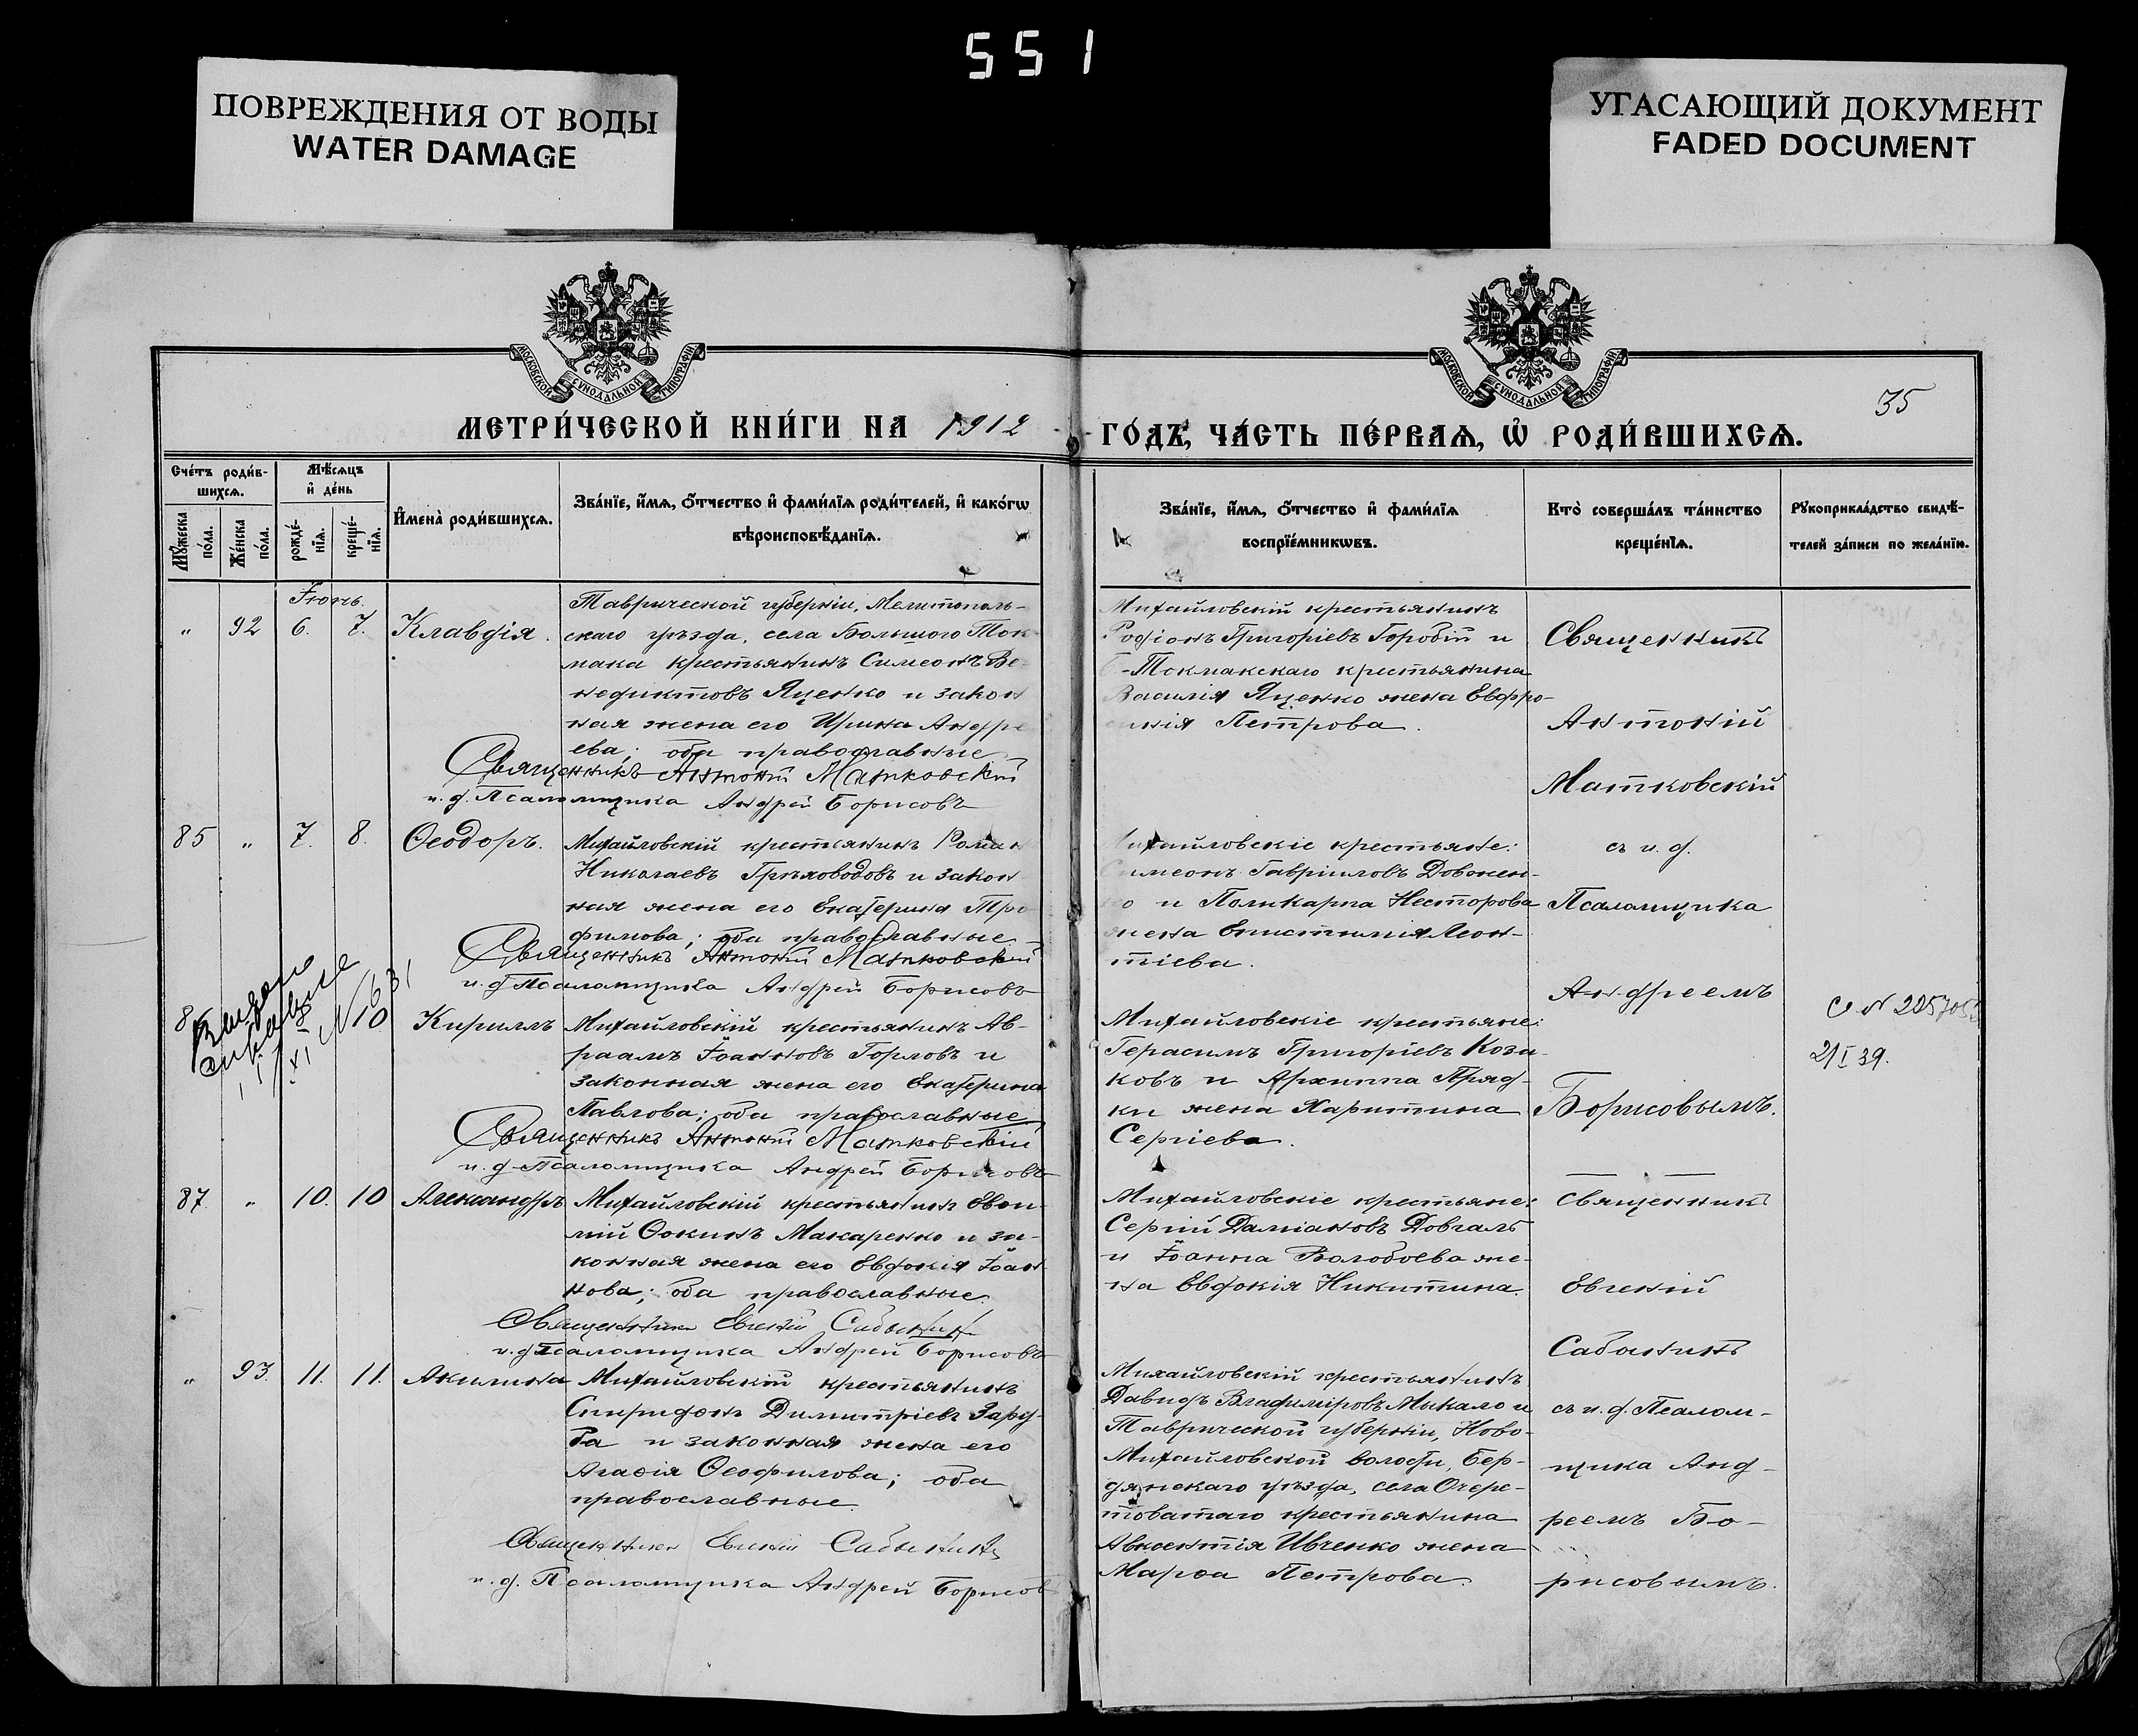 551
ПОВРЕЖДЕНИЯ ОТ ВОДЫ
WATER DAMAGE
УГАСАЮЩИЙ ДОКУМЕНТ
FADED DOCUMENT
МОСКОВСКОЙ СѴНОДАЛЬНОЙ ТИПОГРАФІИ
МОСКОВСКОЙ СѴНОДАЛЬНОЙ ТИПОГРАФІИ
35
МЕТРИ́ЧЕСКОЙ КНИ́ГИ НА 1912
ГО́ДЪ, ЧА́СТЬ ПЕ́РВАѦ, Ѡ҆ РОДИ́ВШИХСѦ.
Сче́тъ роди́в-
шихсѧ.
Мꙋ́жеска
по́ла.
Же́нска
по́ла.
Мѣ́сѧцъ
и҆ де́нь
рожде́-
нїѧ.
креще́-
нїѧ.
И҆мена̀ роди́вшихсѧ.
Зва́нїе, и҆́мѧ, ѻ҆́тчество и҆ фами́лїѧ роди́телей, и҆ како́гѡ
вѣроисповѣ́данїѧ.
Зва́нїе, и҆́мѧ, ѻ҆́тчество и҆ фами́лїѧ
воспрїе́мникѡвъ.
Кто̀ соверша́лъ та́инство
креще́нїѧ.
Рꙋкоприкла́дство свидѣ́-
телей за́писи по жела́нїю.
Іюнь.
" 92 6. 7. Клавдія.
Таврической губерніи, Мелитополь-
скаго уѣзда, села Большого Ток-
мака крестьянинъ Симеонъ Ве-
недиктовъ Яценко и закон
ная жена его Ирина Андре
ева; оба православные
Священникъ Антоній Матковскій
и. д. Псаломщика Андрей Борисовъ
Михайловскій крестьянинъ
Родіонъ Григоріевъ Горобій и
-Токмакскаго крестьянина
Василія Яценко жена Евфро-
синія Петрова.
Священникъ
Антоній
Матковскій
съ и. д.
Псаломщика
Андреемъ
Борисовымъ.
85 " 7. 8. Ѳеодоръ.
Михайловскій крестьянинъ Роман
Николаевъ Грѣховодовъ и закон
ная жена его Екатерина Тро
фимова; оба православные
Священникъ Антоній Матковскій
и. д Псаломщика Андрей Борисовъ
Михайловскіе крестьяне:
Симеонъ Гавріиловъ Довжен-
ко и Поликарпа Несторова
жена Епистимія Леон-
тіева.
8
Выдано
№ 631
10 Кириллъ
Михайловскій крестьянинъ Ав-
раамъ Іоанновъ Горловъ и
законная жена его Екатерина
Павлова; оба православные
Священникъ Антоній Матковскій
и. д Псаломщика Андрей Борисовъ
Михайловскіе крестьяне:
Герасимъ Григоріевъ Коза-
ковъ и Архиппа Пряд-
ки жена Харитина
Сергіева.
21/I 39.
87. " 10. 10 Александръ
Михайловскій крестьянинъ Евѳи-
мій Ѳокинъ Макаренко и за-
конная жена его Евдокія Іоан-
нова; оба православные.
Священникъ Евгеній Сабынинъ
и. д Псаломщика Андрей Борисовъ
Михайловскіе крестьяне:
Сергій Даміановъ Довгаль
и Іоанна Волобоева же-
на Евдокія Никитина.
Священникъ
Евгеній
Сабынинъ
съ и. д. Псалом-
щика Анд-
реемъ Бо-
рисовымъ.
" 93. 11. 11. Акилина
Михайловскій крестьянинъ
Спиридонъ Димитріевъ Зару-
ба и законная жена его
Агаѳія Ѳеофилова; оба
православные.
Священникъ Евгеній Сабынинъ
и. д. Псаломщика Андрей Борисов
Михайловскій крестьянинъ
Давидъ Владиміровъ Микало и
Таврической губерніи, Ново-
Михайловской волости, Бер-
дянскаго уѣзда, села Очере-
товатаго крестьянина
Авксентія Ивченко жена
Марѳа Петрова.